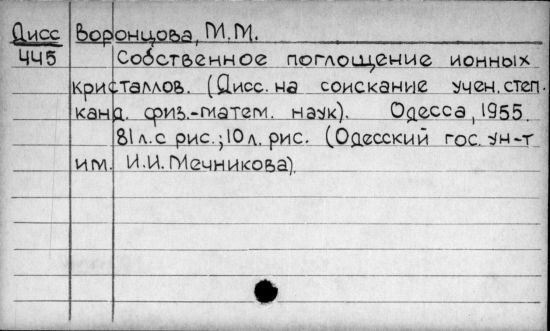 Дисс Воронцова, М.М.
445 Собственное поглощение ионных
кристаллов. (Дисс. на соискание учен. степ.
канд. физ.-матем. наук). Одесса, 1955.
81 л. с рис.; 10 л. рис. (Одесский гос. ун-т
им. И.И. Мечникова).